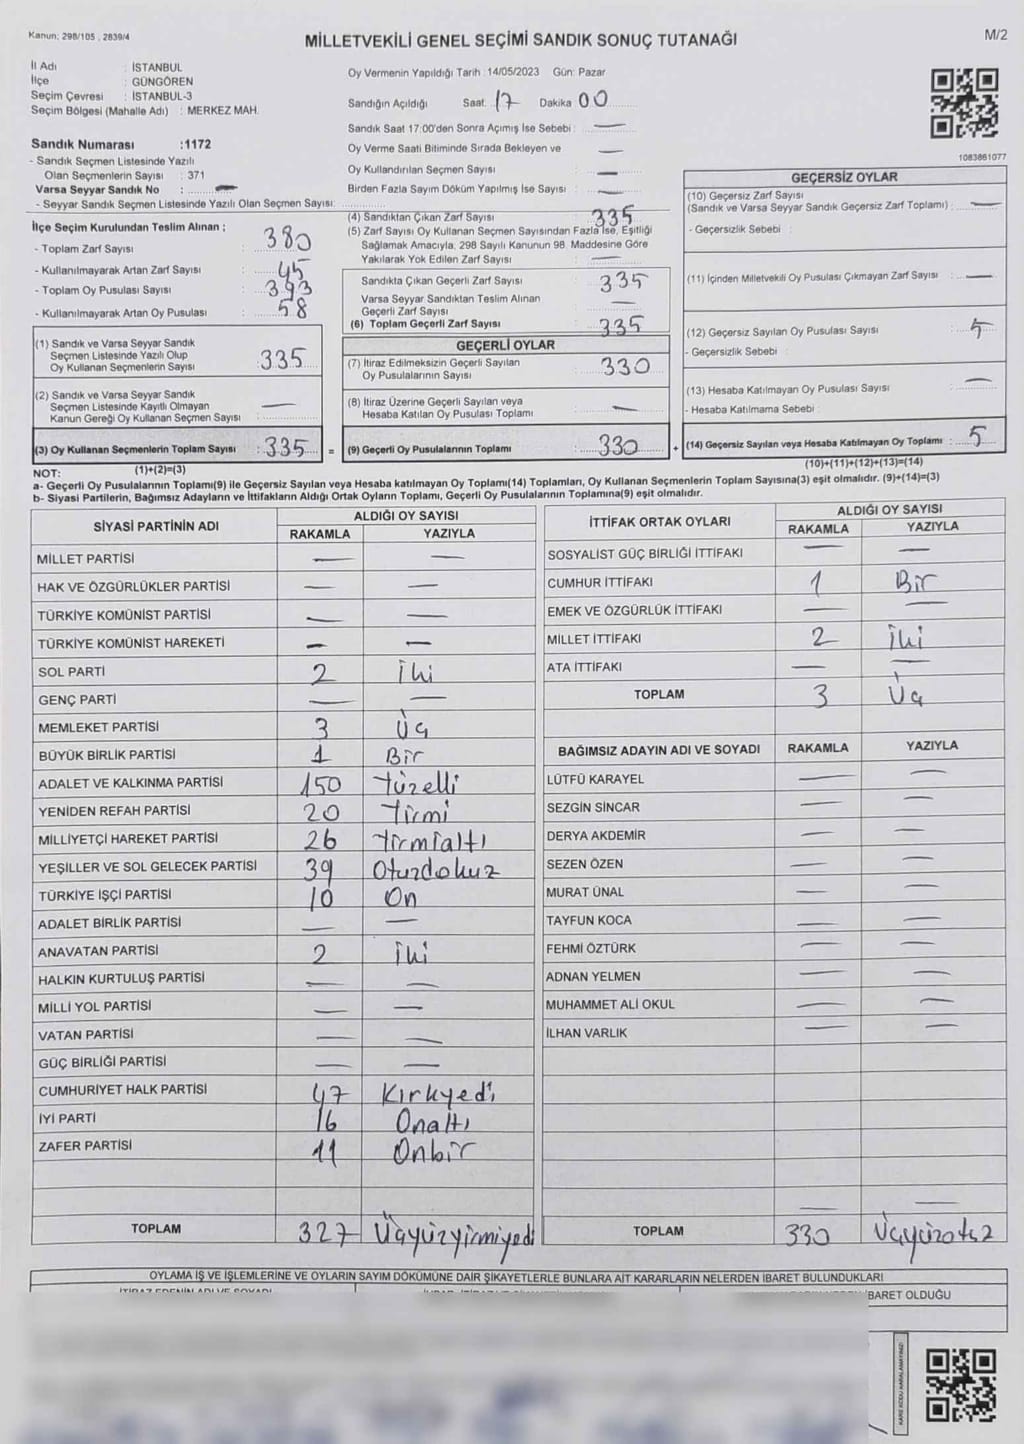 Kanun: 298/105 , 2839/4
MİLLETVEKİLİ GENEL SEÇİMİ SANDIK SONUÇ TUTANAĞI
M/2
İl Adı : İSTANBUL
İlçe : GÜNGÖREN
Seçim Çevresi : İSTANBUL-3
Seçim Bölgesi (Mahalle Adı) : MERKEZ MAH.
Sandık Numarası :1172
- Sandık Seçmen Listesinde Yazılı
Olan Seçmenlerin Sayısı : 371
Varsa Seyyar Sandık No : —
- Seyyar Sandık Seçmen Listesinde Yazılı Olan Seçmen Sayısı:
Oy Vermenin Yapıldığı Tarih :14/05/2023 Gün: Pazar
Sandığın Açıldığı Saat: 17 Dakika 00
Sandık Saat 17:00'den Sonra Açımış İse Sebebi : —
Oy Verme Saati Bitiminde Sırada Bekleyen ve —
Oy Kullandırılan Seçmen Sayısı : —
Birden Fazla Sayım Döküm Yapılmış İse Sayısı : —
1083861077
İlçe Seçim Kurulundan Teslim Alınan ;
- Toplam Zarf Sayısı : 380
- Kullanılmayarak Artan Zarf Sayısı : 45
- Toplam Oy Pusulası Sayısı : 393
- Kullanılmayarak Artan Oy Pusulası : 58
(1) Sandık ve Varsa Seyyar Sandık
Seçmen Listesinde Yazılı Olup
Oy Kullanan Seçmenlerin Sayısı : 335
(2) Sandık ve Varsa Seyyar Sandık
Seçmen Listesinde Kayıtlı Olmayan
Kanun Gereği Oy Kullanan Seçmen Sayısı : —
(3) Oy Kullanan Seçmenlerin Toplam Sayısı : 335 =
(1)+(2)=(3)
(4) Sandıktan Çıkan Zarf Sayısı : 335
(5) Zarf Sayısı Oy Kullanan Seçmen Sayısından Fazla İse, Eşitliği
Sağlamak Amacıyla, 298 Sayılı Kanunun 98. Maddesine Göre
Yakılarak Yok Edilen Zarf Sayısı : —
Sandıkta Çıkan Geçerli Zarf Sayısı : 335
Varsa Seyyar Sandıktan Teslim Alınan
Geçerli Zarf Sayısı : —
(6) Toplam Geçerli Zarf Sayısı : 335
GEÇERLİ OYLAR
(7) İtiraz Edilmeksizin Geçerli Sayılan
Oy Pusulalarının Sayısı : 330
(8) İtiraz Üzerine Geçerli Sayılan veya
Hesaba Katılan Oy Pusulası Toplamı : —
(9) Geçerli Oy Pusulalarının Toplamı : 330 +
GEÇERSİZ OYLAR
(10) Geçersiz Zarf Sayısı
(Sandık ve Varsa Seyyar Sandık Geçersiz Zarf Toplamı) : —
- Geçersizlik Sebebi :
(11) İçinden Milletvekili Oy Pusulası Çıkmayan Zarf Sayısı : —
(12) Geçersiz Sayılan Oy Pusulası Sayısı : 5
- Geçersizlik Sebebi :
(13) Hesaba Katılmayan Oy Pusulası Sayısı : —
- Hesaba Katılmama Sebebi :
(14) Geçersiz Sayılan veya Hesaba Katılmayan Oy Toplamı : 5
(10)+(11)+(12)+(13)=(14)
NOT:
a- Geçerli Oy Pusulalarının Toplamı(9) ile Geçersiz Sayılan veya Hesaba katılmayan Oy Toplamı(14) Toplamları, Oy Kullanan Seçmenlerin Toplam Sayısına(3) eşit olmalıdır. (9)+(14)=(3)
b- Siyasi Partilerin, Bağımsız Adayların ve İttifakların Aldığı Ortak Oyların Toplamı, Geçerli Oy Pusulalarının Toplamına(9) eşit olmalıdır.
SİYASİ PARTİNİN ADI ALDIĞI OY SAYISI
RAKAMLA YAZIYLA
MİLLET PARTİSİ — —
HAK VE ÖZGÜRLÜKLER PARTİSİ — —
TÜRKİYE KOMÜNİST PARTİSİ — —
TÜRKİYE KOMÜNİST HAREKETİ — —
SOL PARTİ 2 İki
GENÇ PARTİ — —
MEMLEKET PARTİSİ 3 Üç
BÜYÜK BİRLİK PARTİSİ 1 Bir
ADALET VE KALKINMA PARTİSİ 150 Yüzelli
YENİDEN REFAH PARTİSİ 20 Yirmi
MİLLİYETÇİ HAREKET PARTİSİ 26 Yirmialtı
YEŞİLLER VE SOL GELECEK PARTİSİ 39 Otuzdokuz
TÜRKİYE İŞÇİ PARTİSİ 10 On
ADALET BİRLİK PARTİSİ — —
ANAVATAN PARTİSİ 2 İki
HALKIN KURTULUŞ PARTİSİ — —
MİLLİ YOL PARTİSİ — —
VATAN PARTİSİ — —
GÜÇ BİRLİĞİ PARTİSİ — —
CUMHURİYET HALK PARTİSİ 47 Kırkyedi
İYİ PARTİ 16 Onaltı
ZAFER PARTİSİ 11 Onbir
TOPLAM 327 Üçyüzyirmiyedi
İTTİFAK ORTAK OYLARI ALDIĞI OY SAYISI
RAKAMLA YAZIYLA
SOSYALİST GÜÇ BİRLİĞİ İTTİFAKI — —
CUMHUR İTTİFAKI 1 Bir
EMEK VE ÖZGÜRLÜK İTTİFAKI — —
MİLLET İTTİFAKI 2 İki
ATA İTTİFAKI — —
TOPLAM 3 Üç
BAĞIMSIZ ADAYIN ADI VE SOYADI RAKAMLA YAZIYLA
LÜTFÜ KARAYEL — —
SEZGİN SİNCAR — —
DERYA AKDEMİR — —
SEZEN ÖZEN — —
MURAT ÜNAL — —
TAYFUN KOCA — —
FEHMİ ÖZTÜRK — —
ADNAN YELMEN — —
MUHAMMET ALİ OKUL — —
İLHAN VARLIK — —
— —
TOPLAM 330 Üçyüzotuz
OYLAMA İŞ VE İŞLEMLERİNE VE OYLARIN SAYIM DÖKÜMÜNE DAİR ŞİKAYETLERLE BUNLARA AİT KARARLARIN NELERDEN İBARET BULUNDUKLARI
İTİRAZ EDENİN ADI VE SOYADI
İBARET OLDUĞU
KARE KODU KARALAMAYINIZ!